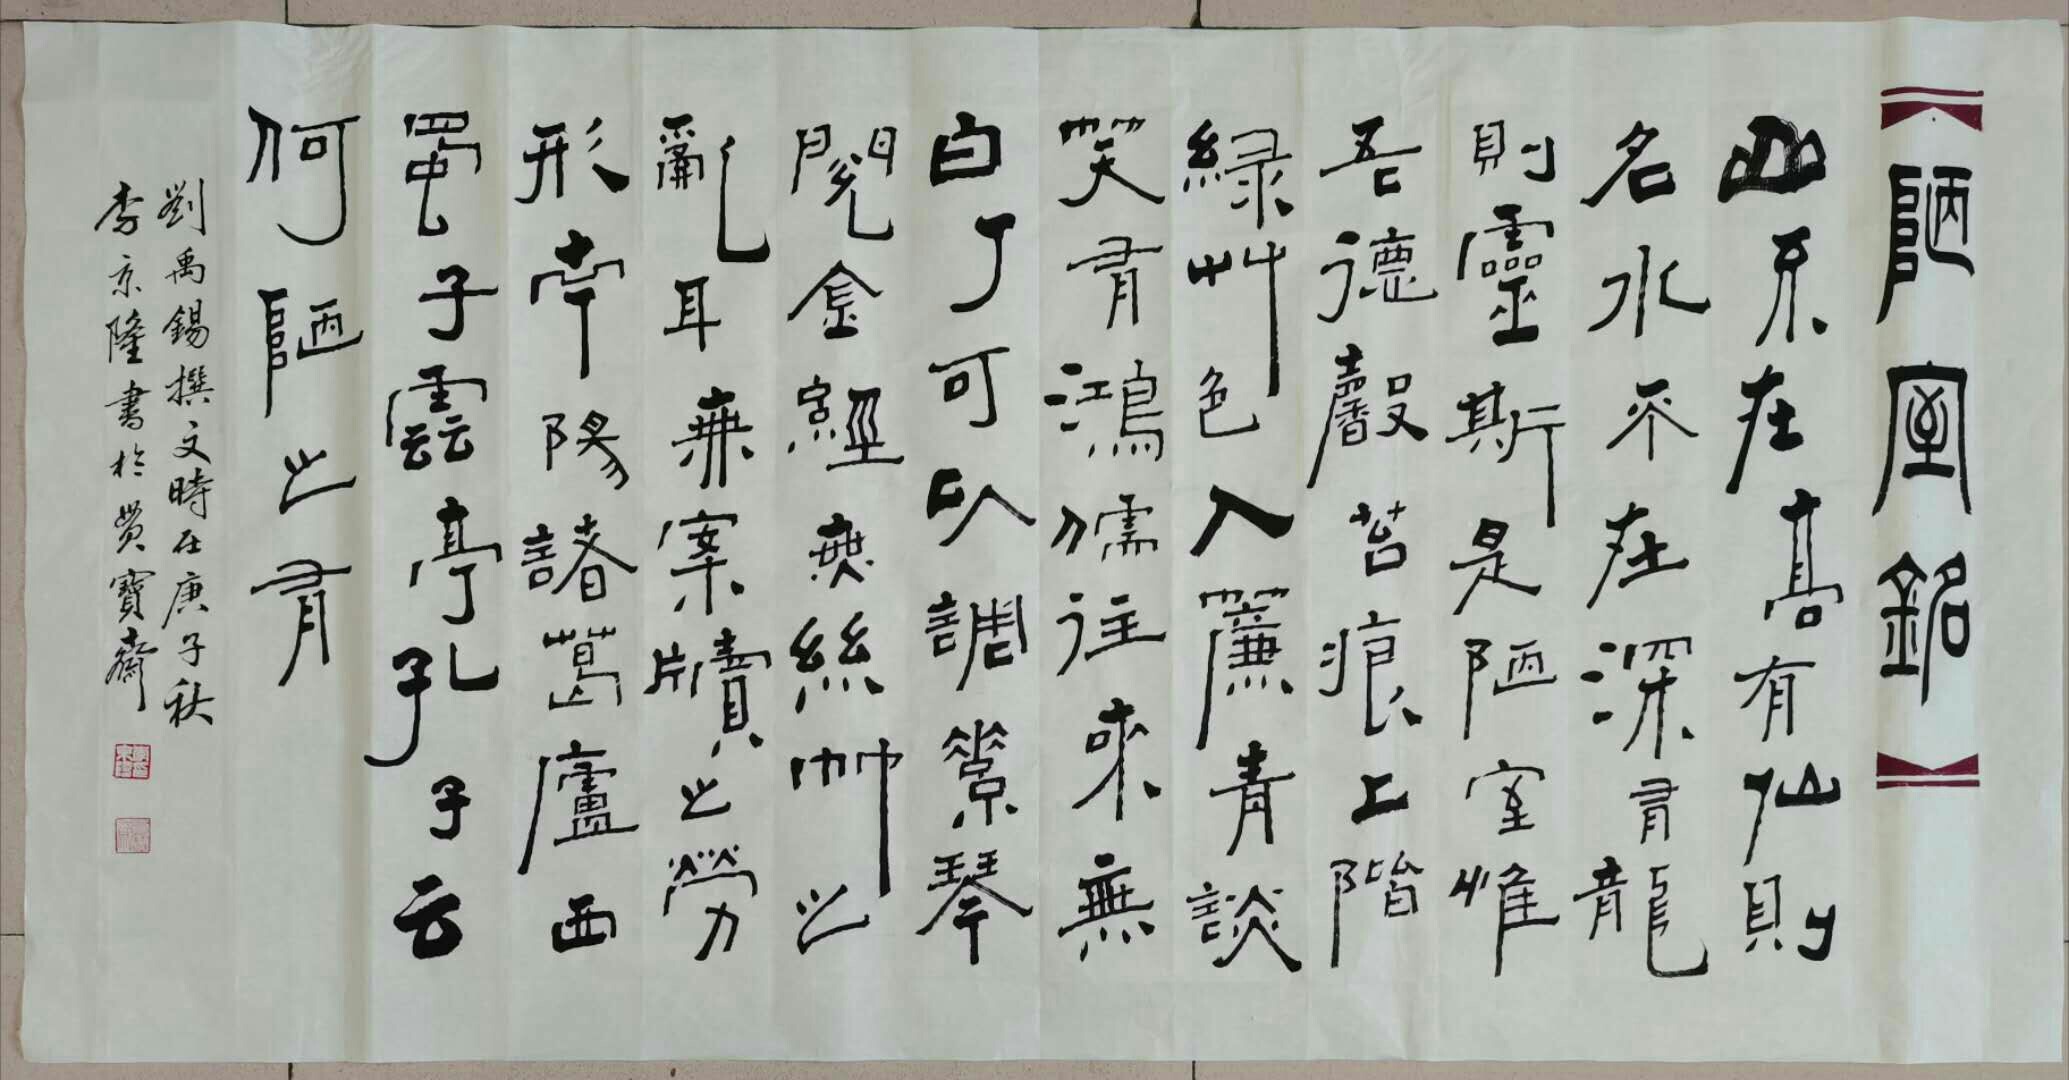 【陋室銘】
山不在高有仙則
名水不在深有龍
則靈斯是陋室惟
吾德馨苔痕上階
緑艸色入簾青談
笑有鴻儒往來無
白丁可以調素琴
閱金經無絲竹之
亂耳無案牘之勞
形南陽諸葛廬西
蜀子雲亭孔子云
何陋之有
劉禹錫撰文時在庚子秋
李京隆書於寶齋